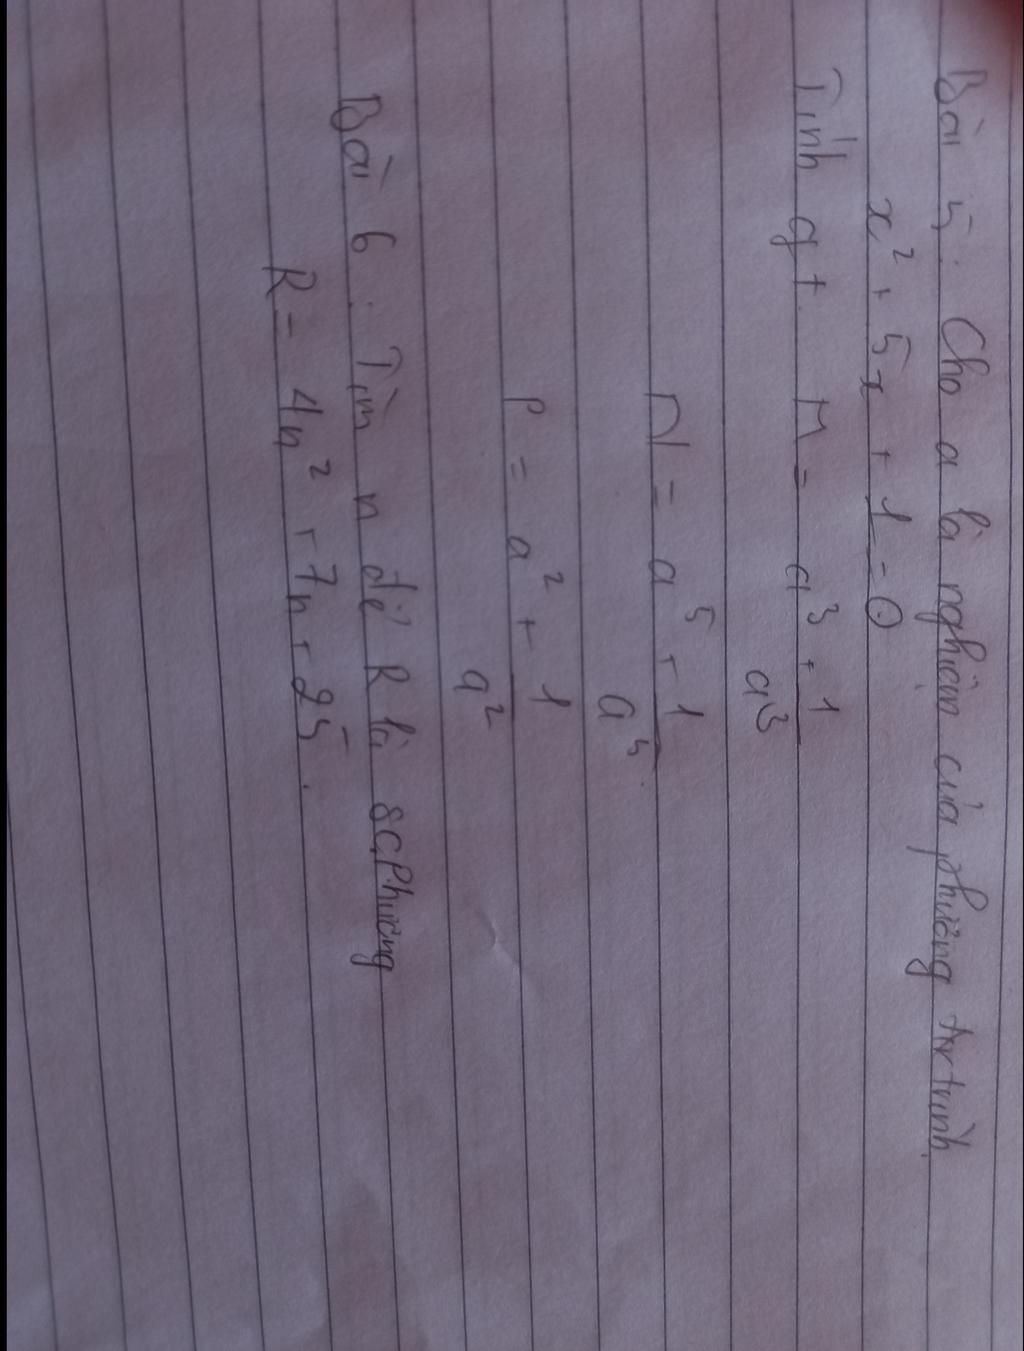 Bài 5: Cho a là nghiệm của phương trình
x² + 5x + 1 = 0
Tính gt M = a³ + 1/a³
N = a⁵ + 1/a⁵
P = a² + 1/a²
Bài 6: Tìm n để R là SCPhương
R = 4n² + 7n + 25.